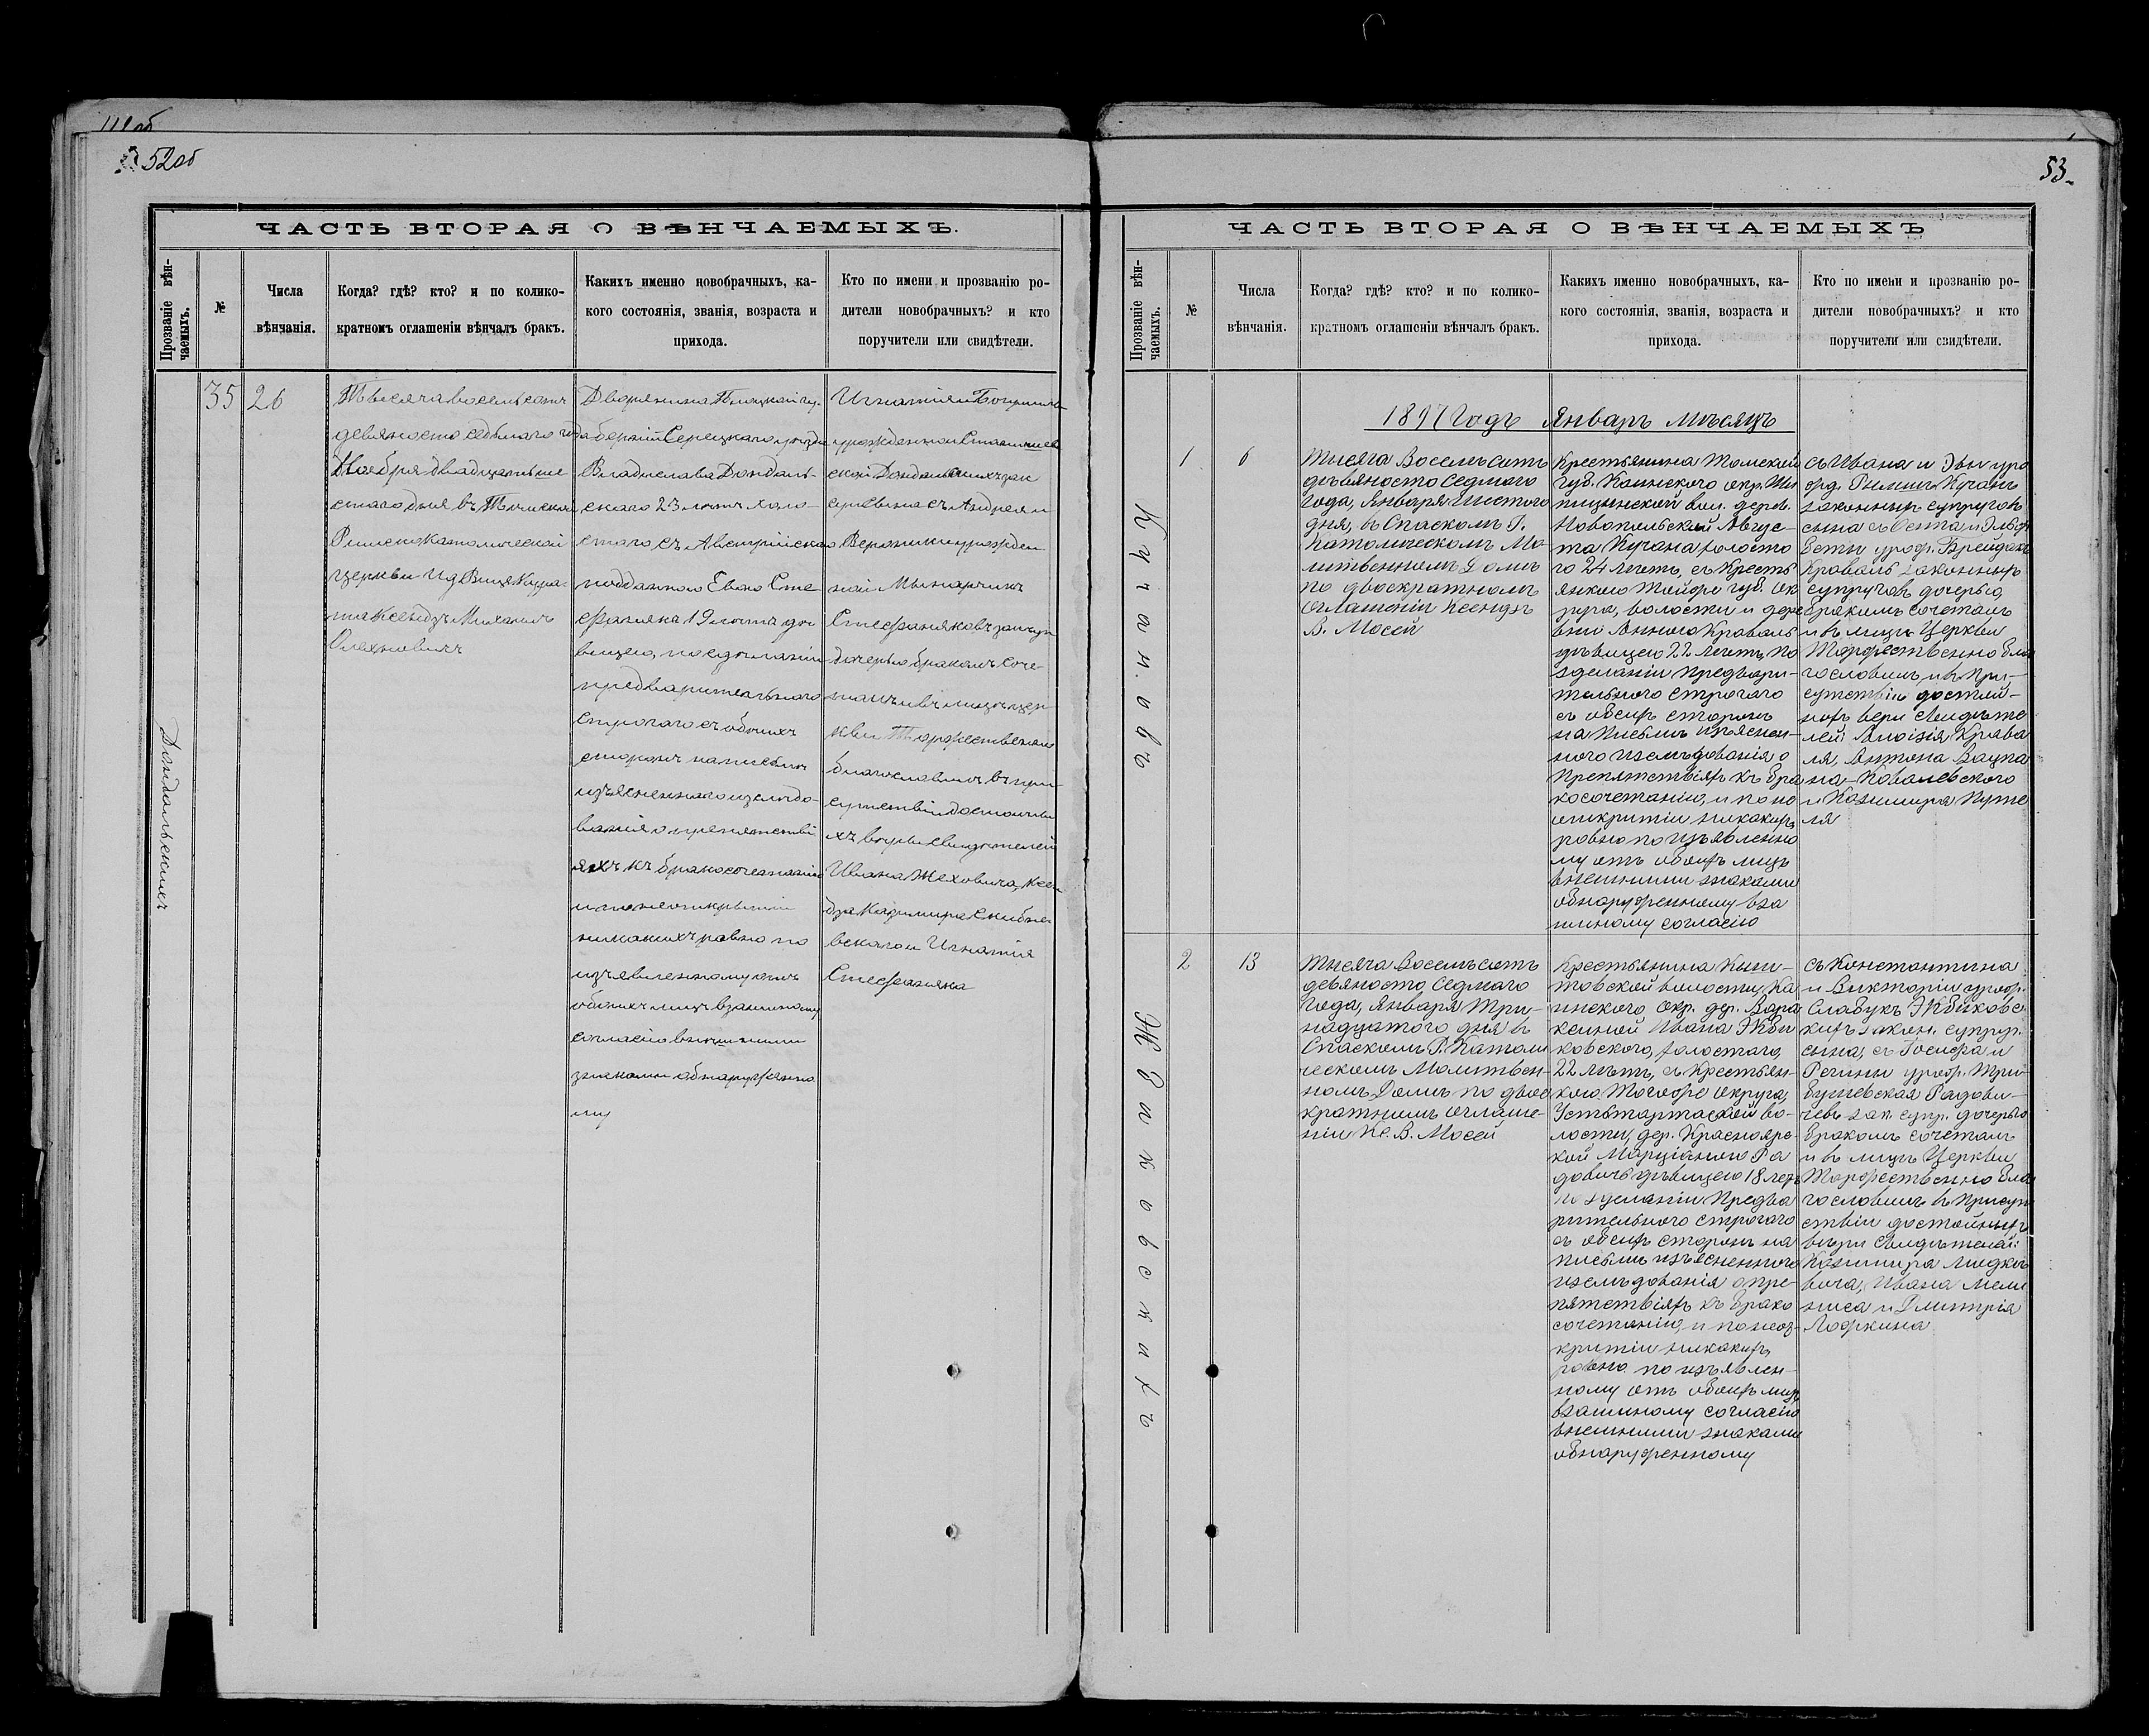 52об
ЧАСТЬ ВТОРАЯ О ВѢНЧАЕМЫХЪ.
Прозваніе вѣн-
чаемыхъ.
№
Числа
вѣнчанія.
Когда? гдѣ? кто? и по колико-
кратномъ оглашеніи вѣнчалъ бракъ.
Какихъ именно новобрачныхъ, ка-
кого состоянія, званія, возраста и
прихода.
Кто по имени и прозванію ро-
дители новобрачныхъ? и кто
поручители или свидѣтели.
35
26
Тысяча восемьсотъ
девяносто седьмаго года
Ноября двадцать ше
стаго дня въ Томской
Римско Католической
церкви
Ксендзъ Михаилъ
Олехновичъ
Дворянина
Владислава Дондаль-
скаго 23 лѣтъ холо-
стаго съ Австрійскою
подданною Евою Сте
фаняка 19 лѣтъ дѣ
вицею, по сдѣланіи
предварительнаго
строгаго съ обоихъ
сторонъ на письмѣ
изъясненнаго изслѣдо-
ванія о препятстві
яхъ къ бракосочетанію
и по неоткрытіи
никакихъ равно по
изъявленному отъ
обоихъ лицъ взаимному
согласію внѣшними
знаками обнаруженно
му
Игнатія и
урожденной
Дондальскихъ зак
супр сына съ Андрея и
Вероники урожден
ной
Стефаняковъ зак супр
дочерью бракомъ соче-
талъ и въ лицѣ цер
кви Торжественно
благословилъ въ при
сутствіи достойны
хъ вѣры свидѣтелей
Ивана Жеховича, Ксен
дза Казимира
и Игнатія
Стефаняка
Дондальскихъ
53.
ЧАСТЬ ВТОРАЯ О ВѢНЧАЕМЫХЪ
Прозваніе вѣн-
чаемыхъ.
№
Числа
вѣнчанія.
Когда? гдѣ? кто? и по колико-
кратномъ оглашеніи вѣнчалъ бракъ.
Какихъ именно новобрачныхъ, ка-
кого состоянія, званія, возраста и
прихода.
Кто по имени и прозванію ро-
дители новобрачныхъ? и кто
поручители или свидѣтели.
1897 Годъ Январь мѣсяцъ
Кучановъ
1
6
Тысяча Восемьсотъ
девяносто Седмого
Года, Января Шестого
дня, въ Спаскомъ Р.
Католическомъ Мо-
литвенномъ Домѣ
по двоекратномъ
Оглашеніи Ксендзъ
В. Мосей
Крестьянина Томской
Губ. Каинского окр.
вол. дерев.
Новопольской Авгус-
та Кучана холосто
го 24 лѣтъ, съ Кресть
янкою Тойже губ. Ок
руга, волости и дере
вни Анною Кроваль
дѣвицею 22 лѣтъ, по
зделаніи Предвари-
тельного строгаго
съ обеихъ сторонъ
на Письмѣ изъяснен-
ного изслѣдованія о
Препятствіяхъ къ бра
косочетанію, и по не
открытіи никакихъ
равно по изъявленно
му отъ обоихъ лицъ
внешними знаками
обнаруженному вза
имному согласію
съ Ивана и Эвы уро
жд. Кучанъ
законныхъ супруговъ
сына съ и Эльж
беты урож.
Кроваль законныхъ
супруговъ дочерью
бракомъ сочеталъ
и въ лицѣ Церкви
Торжественно бла
гословилъ, въ при-
сутствіи достой-
ныхъ вѣры Свидѣте
лей: Алоізія Крива
ля, Антона
Ковалевского
и Казимира
2
13
Тысяча Восемьсотъ
девяносто Седмого
Года, Января Три-
надцатого дня въ
Спаскомъ Р. Католи
ческомъ Молитвен-
номъ Домѣ по двое
кратнымъ оглаше-
ніи Кс. В. Мосей
Крестьянина Кыш-
товской волости, Ка
инского Окр. дер.
Ивана Жби
ковского, холостаго,
22 лѣтъ, съ Крестьян-
кою Тогоже Округа,
Устьтартаской во-
лости, дер. Красноярс-
кой Марціаною Ра
довичъ дѣвицею 18 летъ
по зделаніи Предва
рительного строгаго
съ обеихъ сторонъ на
письмѣ изъясненного
изслѣдованія о пре-
пятствіяхъ къ брако
сочетанію, и по неот-
крытіи никакихъ
равно по изъявлен-
ному отъ обоихъ лицъ
взаимному согласію
внешними знаками
обнаруженному
съ Константина
и Викторіи урож.
Слабукъ Жбиковс-
кихъ закон. супруг.
сына, съ Іосифа и
Регины урож.
Радови-
чевъ зак. супр. дочерью
бракомъ сочеталъ
и въ лицѣ Церкви
Торжественно бла
гословилъ въ Присут
ствіи достойныхъ
вѣры свидѣтелей:
Казимира
Ивана
и Дмитрія
Лоркина
Жбиковскихъ